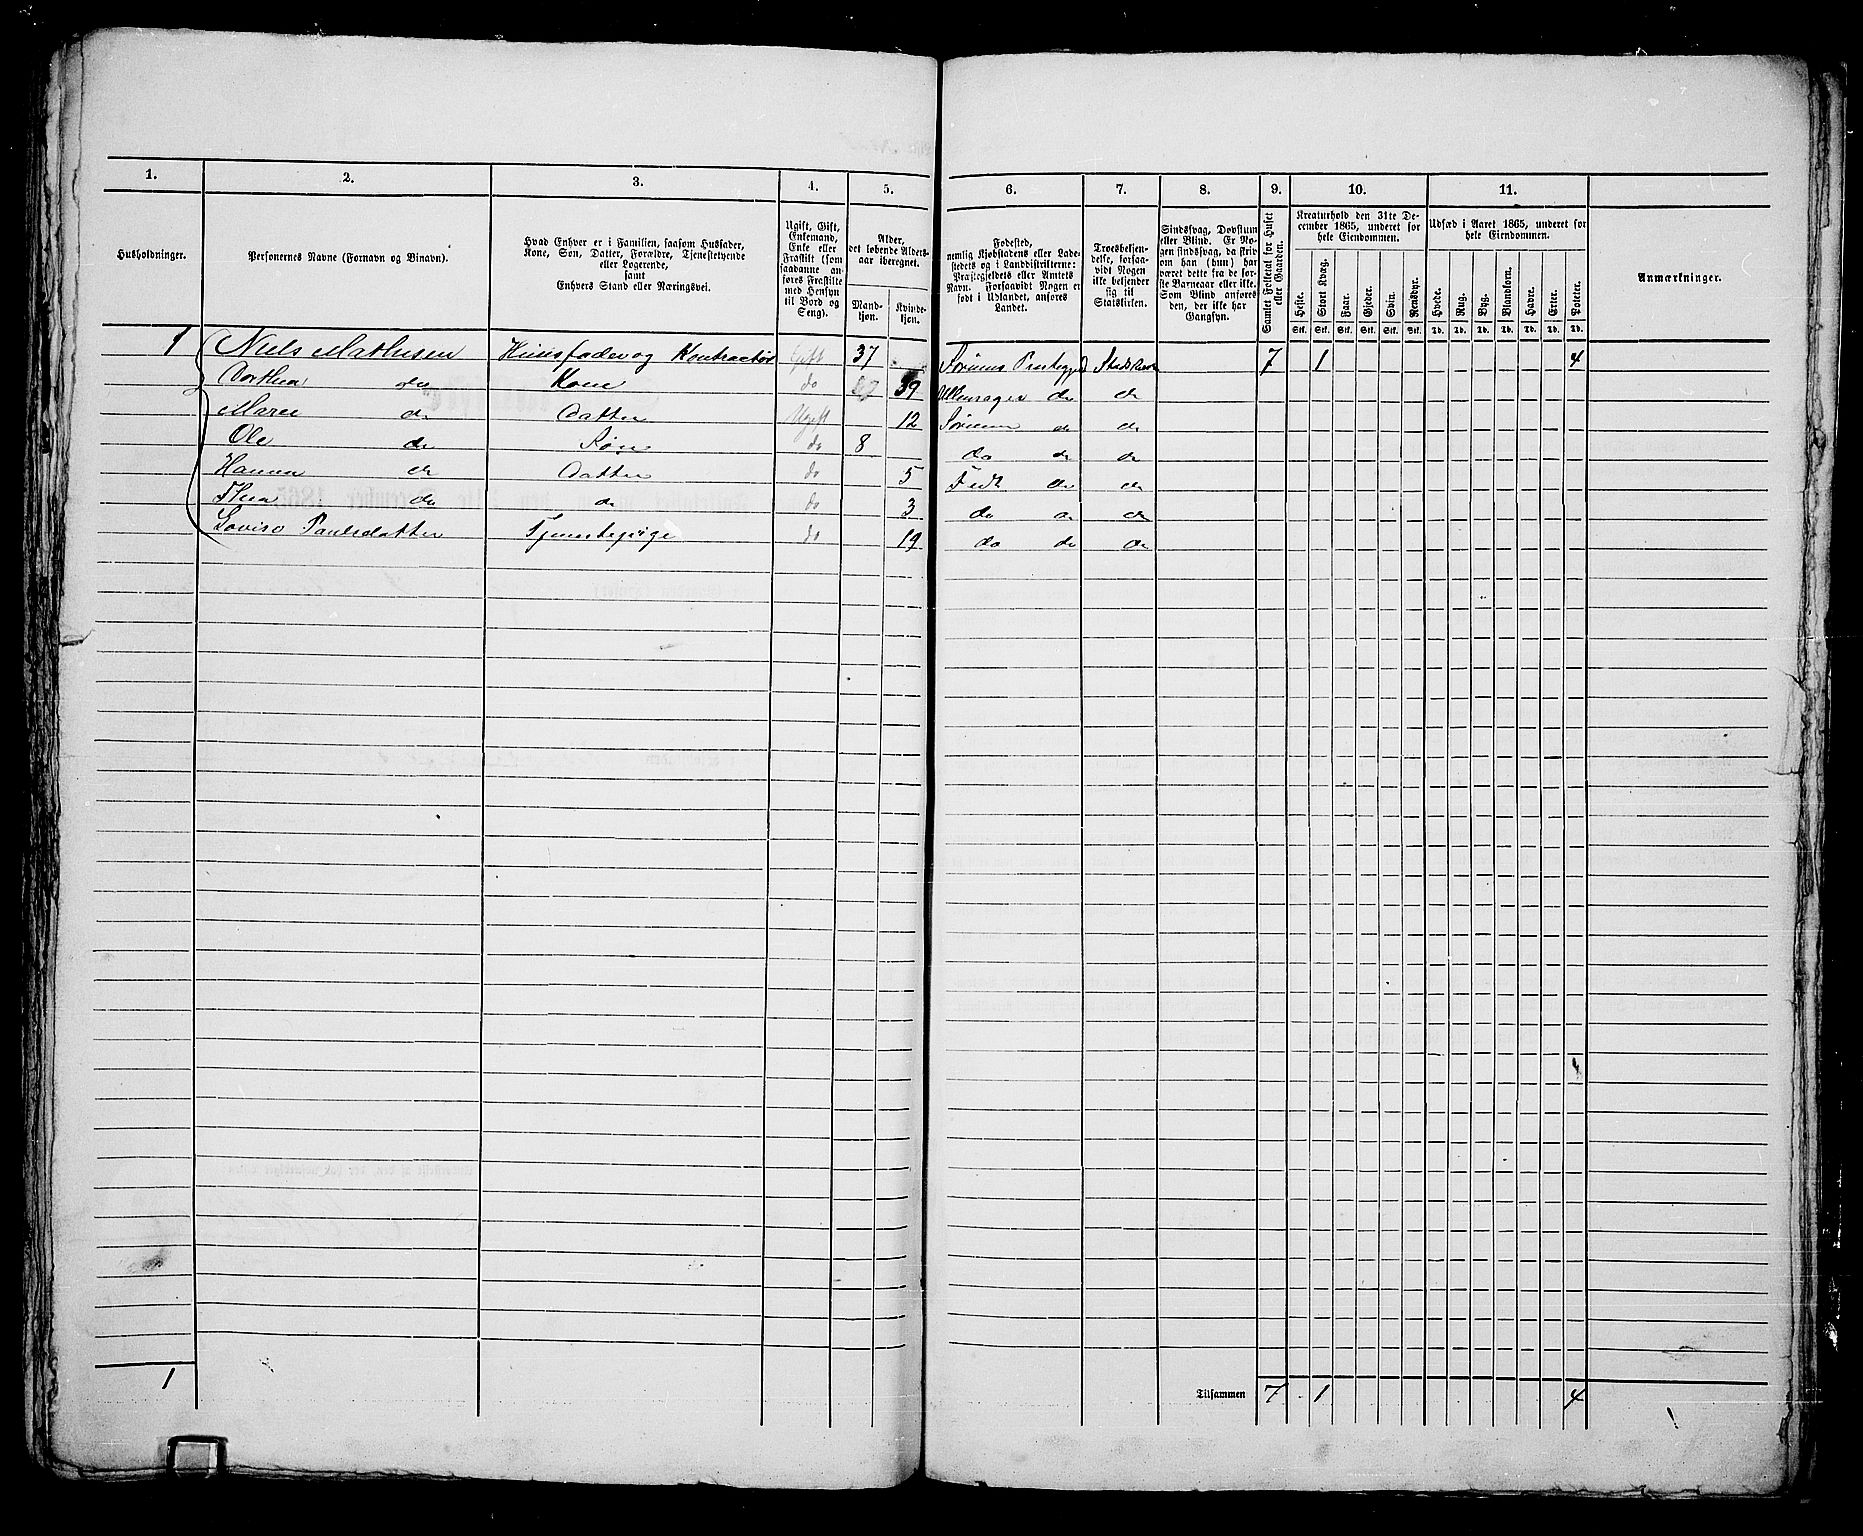 1. 2. 3. 4. 5. 6. 7. 8. 9. 10. 11.
Husholdninger.
Personernes Navne (Fornavn og Binavn).
Hvad Enhver er i Familien, saasom Husfader,
Kone, Søn, Datter, Forældre, Tjenestetyende
eller Logerende,
samt
Enhvers Stand eller Næringsvei.
Ugift, Gift,
Enkemand,
Enke eller
Fraskilt (som
saadanne an-
føres Fraskilte
med Hensyn
til Bord og
Seng).
Alder,
det løbende Alders-
aar iberegnet.
Mand-
kjøn.
Kvinde-
kjøn.
Fødested,
nemlig Kjøbstadens eller Lade-
stedets og i Landdistrikterne:
Præstegjeldets eller Amtets
Navn. Forsaavidt Nogen er
født i Udlandet, anføres
Landet.
Troesbekjen-
delse, forsaa-
vidt Nogen
ikke bekjender
sig til
Statskirken.
Sindssvag, Døvstum
eller Blind. Er No-
gen sindssvag, da skrives
om han (hun) har
været dette fra de før-
ste Barneaar eller ikke.
Som Blind anføres
den, der ikke har
Gangsyn.
Samlet Folketal for Huset
eller Gaarden.
Kreaturhold den 31te De-
cember 1865, underet for
hele Eiendommen.
Heste. Stort Kvæg. Faar. Gjeder. Svin. Rensdyr.
Stk. Stk. Stk. Stk. Stk. Stk.
Udsæd i Aaret 1865, underet for
hele Eiendommen.
Hvede. Rug. Byg. Blandkorn. Havre. Erter. Poteter.
Td. Td. Td. Td. Td. Td. Td.
Anmærkninger.
1 Niels Mathisen Huusfader og Kontractør Gift 37 Sørums Prestegjeld Statskirken 7 1 4
Dorthea do Kone do 39 Ullensager do do
Maren do Datter Ugift 12 Sørum do do
Ole do Søn do 8 do do do
Hanna do Datter do 5 Fedt do do
Thea do do do 3 do do do
Loviso Paulsdatter Tjenestepige do 19 do do do
1 Tilsammen 7 1 4